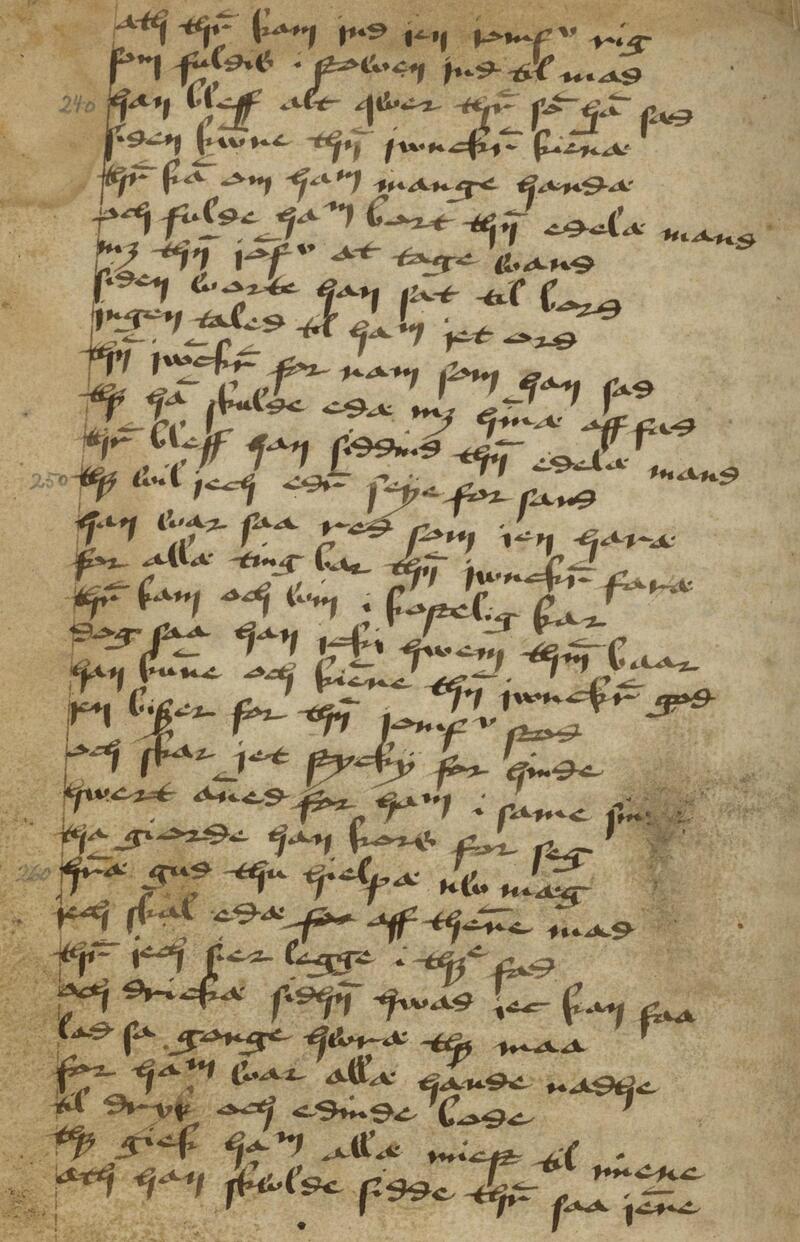 ath thr̄ kam ind jen jomfv rig
som fuldis i stowen ind til mad
240 han bleff alt qwer thr̄ sō hā sad
siden kwn̄e thn̄ jwnckr̄ kiēnæ
thr̄ kā om ham mange handæ
och fulde ham bort thn̄ edelæ mand
mz thn̄ jōfv at tage wand
siden worte han sat til bord
jngen taled til ham jet ord
thn̄ jwn̄ckr̄ for nam som han sad
thz hā skulde edæ mz hin̄æ aff fad
thr̄ bleff han siddind thn̄ edelæ mand
250 thz wil jech edr̄ seye for sand
han war saa red som jen haræ
for allæ ting bar thn̄ jwnckr̄ faræ
thr̄ kam och win i kostelig kar
dog saa han jcki hwem thm̄ baar
han kun̄ne och kien̄e thn̄ jwnckr̄ god
jen bisser for thn̄ jomfv stod
och skar jet stycky for hinde
hwert an̄ed for ham i same
tha giorde han kors for seg
260 hr̄æ gud thu hielpæ nw mæg
jech skal edæ for aff then̄e mad
thr̄ jech sier legge i thze fad
och drickæ sidhn̄ hwad jec kan faa
lad sa gonge hworæ thz maa
for ham war allæ hande nadhe
til dryk och edinde bode
thz giek ham allæ miest til mien̄e
ath han skwlde sidde thr̄ saa jen̄e